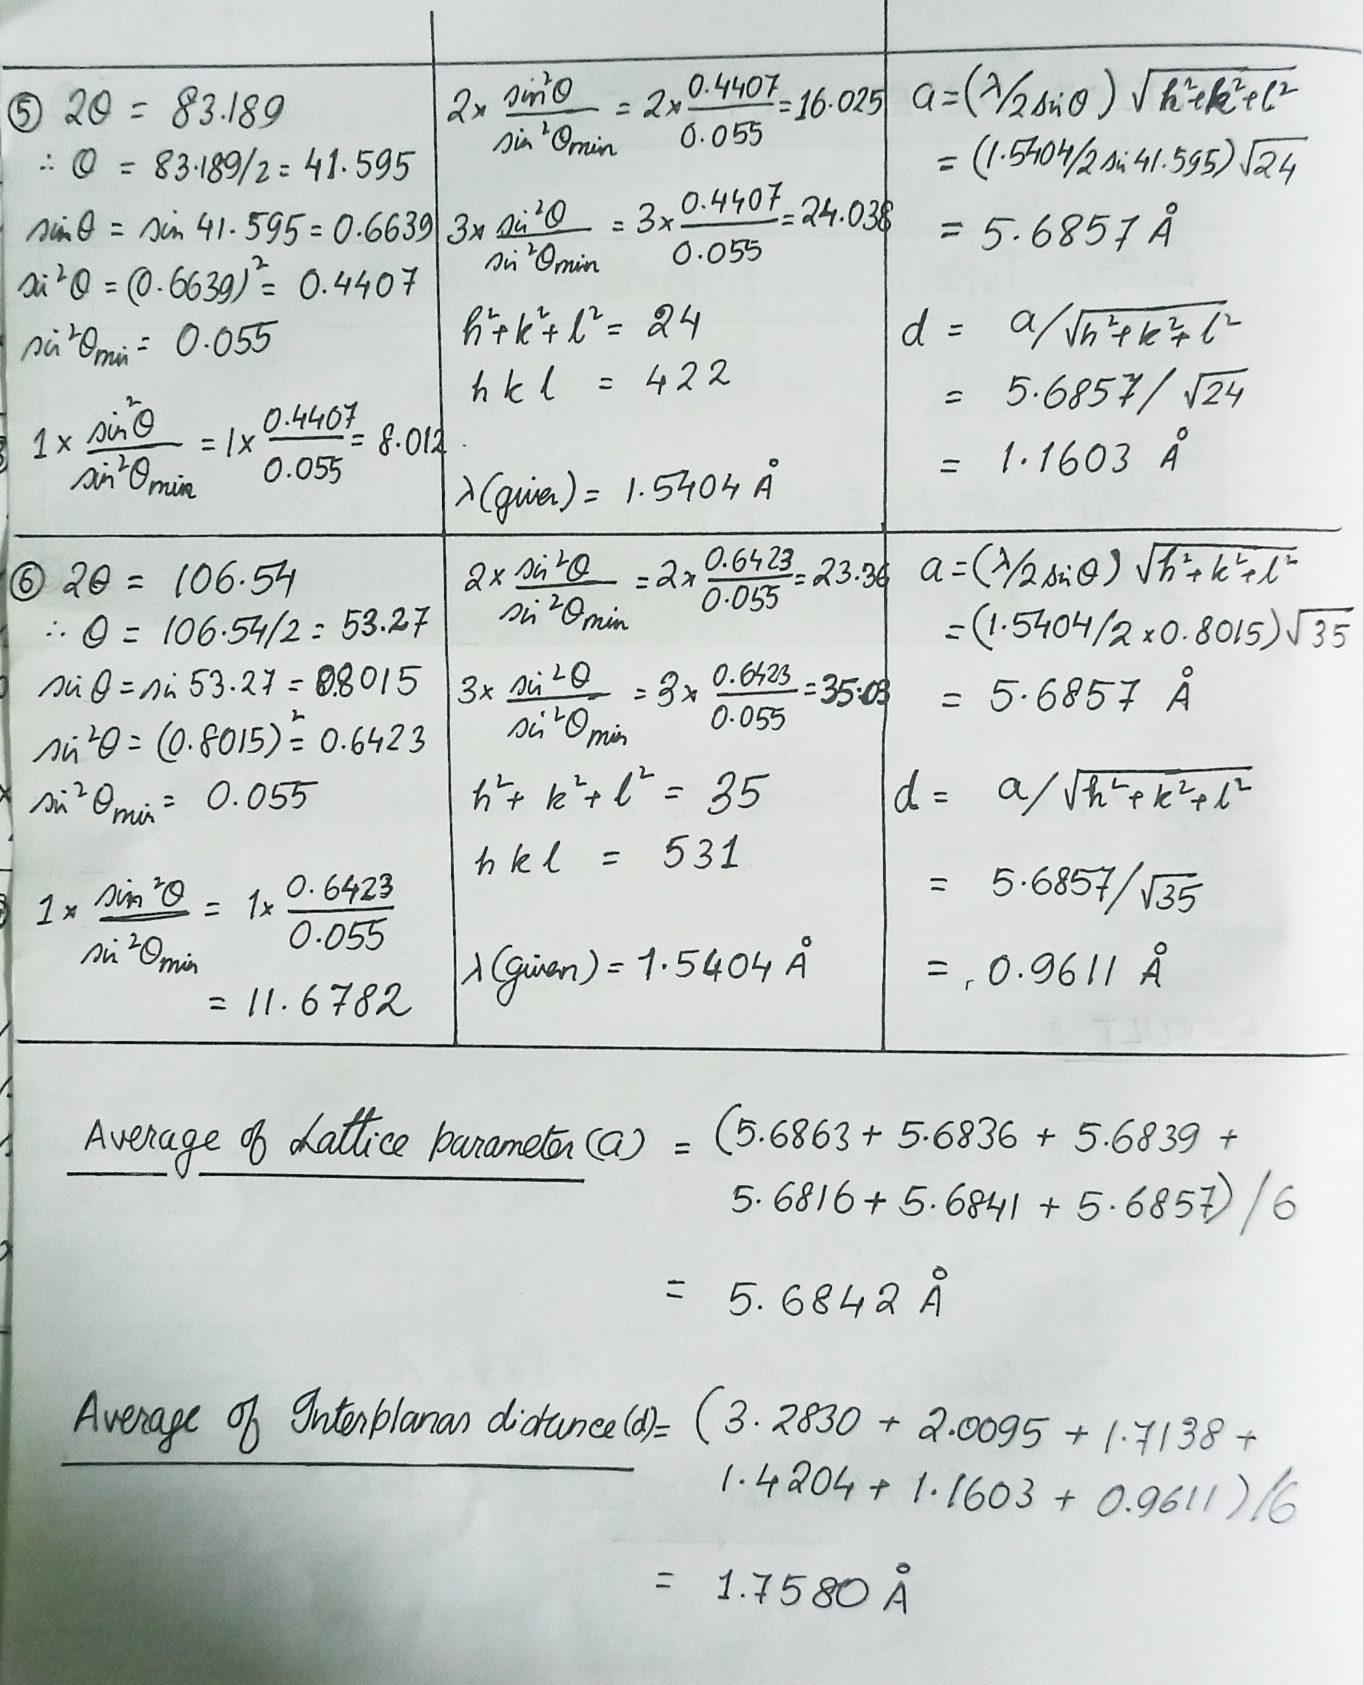 ⑤ 2θ = 83.189
∴ θ = 83.189/2 = 41.595
sinθ = sin 41.595 = 0.6639
sin²θ = (0.6639)² = 0.4407
sin²θmin = 0.055
1 × sin²θ/sin²θmin = 1× 0.4407/0.055 = 8.012
2× sin²θ/sin²θmin = 2× 0.4407/0.055 = 16.025
3× sin²θ/sin²θmin = 3× 0.4407/0.055 = 24.038
h²+k²+l² = 24
h k l = 422
λ(given) = 1.5404 Å
a = (λ/2 sinθ) √h²+k²+l²
= (1.5404/2 sin 41.595) √24
= 5.6857 Å
d = a/√h²+k²+l²
= 5.6857/√24
= 1.1603 Å
⑥ 2θ = 106.54
∴ θ = 106.54/2 = 53.27
sinθ = sin 53.27 = 0.8015
sin²θ = (0.8015)² = 0.6423
sin²θmin = 0.055
1 × sin²θ/sin²θmin = 1× 0.6423/0.055
= 11.6782
2× sin²θ/sin²θmin = 2× 0.6423/0.055 = 23.36
3× sin²θ/sin²θmin = 3× 0.6423/0.055 = 35.03
h²+k²+l² = 35
h k l = 531
λ(given) = 1.5404 Å
a = (λ/2 sinθ) √h²+k²+l²
= (1.5404/2 × 0.8015) √35
= 5.6857 Å
d = a/√h²+k²+l²
= 5.6857/√35
= 0.9611 Å
Average of Lattice parameter (a) = (5.6863 + 5.6836 + 5.6839 +
5.6816 + 5.6841 + 5.6857) / 6
= 5.6842 Å
Average of Interplanar distance (d) = (3.2830 + 2.0095 + 1.7138 +
1.4204 + 1.1603 + 0.9611)/6
= 1.7580 Å